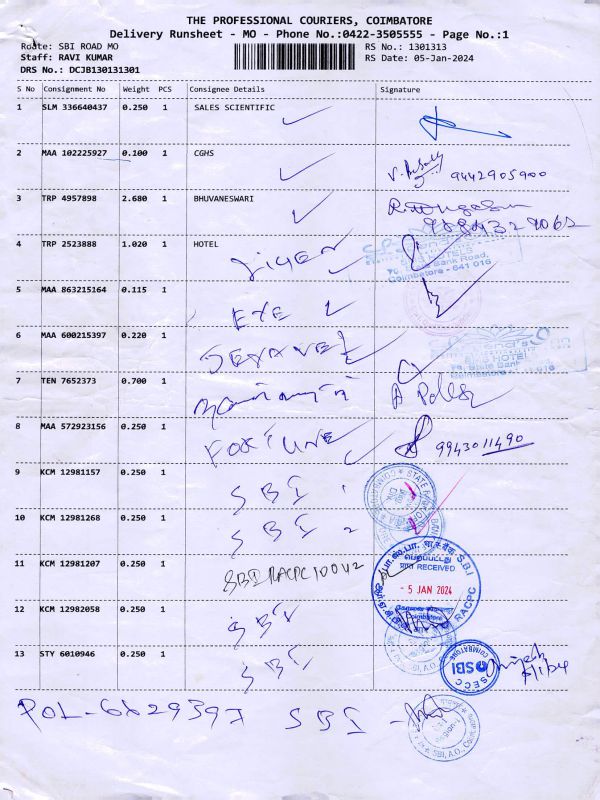 THE PROFESSIONAL COURIERS, COIMBATORE
Delivery Runsheet - MO - Phone No.:0422-3505555 - Page No.:1
Route: SBI ROAD MO
RS No.: 1301313
Staff: RAVI KUMAR
RS Date: 05-Jan-2024
DRS No.: DCJB130131301
S No Consignment No Weight PCS Consignee Details Signature
1 SLM 336640437 0.250 1 SALES SCIENTIFIC
2 MAA 102225927 0.100 1 CGHS 9442905900
3 TRP 4957898 2.680 1 BHUVANESWARI
4 TRP 2523888 1.020 1 HOTEL
State Bank Road,
Coimbatore - 641 018
5 MAA 863215164 0.115 1 EYE
6 MAA 600215397 0.220 1
7 TEN 7652373 0.700 1
8 MAA 572923156 0.250 1 FORTUNE 9943011490
9 KCM 12981157 0.250 1 SBI
10 KCM 12981268 0.250 1 SBI
11 KCM 12981207 0.250 1 SBI RACPC 10042
RECEIVED
- 5 JAN 2024
RACPC
12 KCM 12982058 0.250 1 SBI
13 STY 6010946 0.250 1 SBI
SBI
SECC
COIMBATORE
POL-6829397 SBI